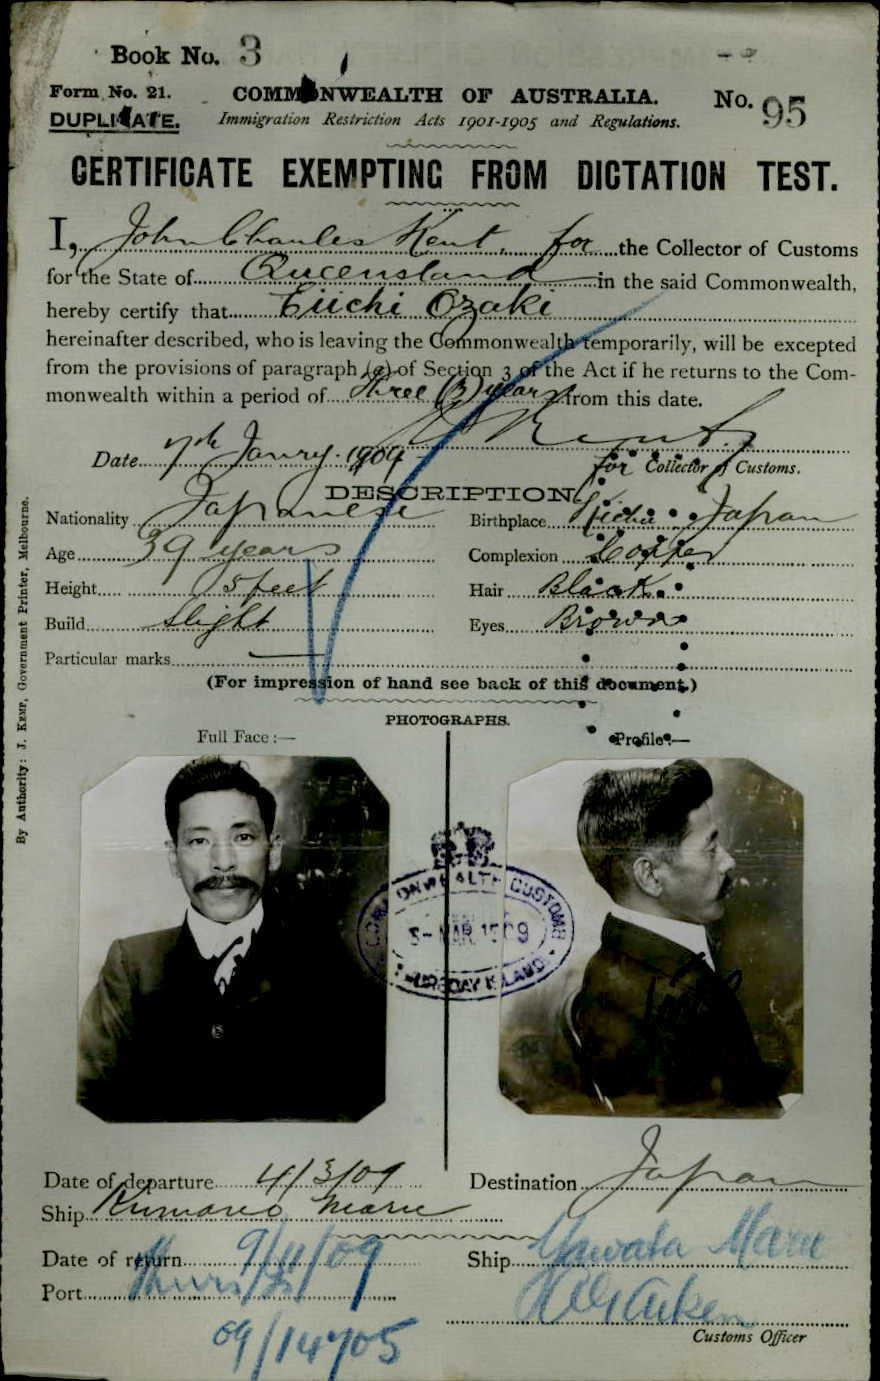 Book No. 3
Form No. 21.
COMMONWEALTH OF AUSTRALIA.
No. 95
DUPLICATE.
Immigration Restriction Acts 1901-1905 and Regulations.
CERTIFICATE EXEMPTING FROM DICTATION TEST.
I, John Charles Kent, for the Collector of Customs
for the State of Queensland in the said Commonwealth,
hereby certify that Eiichi Ozaki
hereinafter described, who is leaving the Commonwealth temporarily, will be excepted
from the provisions of paragraph (a) of Section 3 of the Act if he returns to the Com-
monwealth within a period of Three (3) years from this date.
Kent
Date 7th Janry. 1909
for Collector of Customs.
DESCRIPTION.
Nationality Japanese
Birthplace Japan
Age 39 years
Complexion Copper
Height 5 feet
Hair Black
Build Slight
Eyes Brown
Particular marks —
(For impression of hand see back of this document.)
PHOTOGRAPHS.
Full Face :—
Profile :—
COMMONWEALTH CUSTOMS
MAR. 1909
THURSDAY ISLAND
Date of departure 4/3/09
Destination Japan
Ship Kumano Maru
Date of return 9/11/09
Ship Yawata Maru
Port Thurs. Is.
Customs Officer
09/14705
By Authority: J. KEMP, Government Printer, Melbourne.